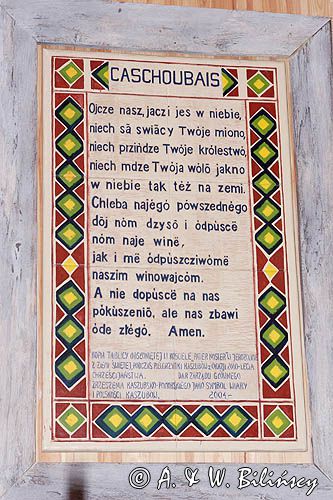 CASCHOUBAIS
Ojcze nasz, jaczi jes w niebie,
niech sã swiãcy Twòje miono,
niech przińdze Twòje królestwò,
niech mdze Twòja wòlô jakno
w niebie tak téż na zemi.
Chleba najégò pòwszednégò
dôj nóm dzysô i òdpùscë
nóm naje winë,
jak i më òdpùszcziwómë
naszim winowajcóm.
A nie dopùscë na nas
pòkùszeniô, ale nas zbawi
òde złégò. Amen.
KOPIA TABLICY W KOŚCIELE PATER NOSTER W JEROZOLIMIE
Z ZIEMI ŚWIĘTEJ PODCZAS PIELGRZYMKI KASZUBÓW Z OKAZJI 2000-LECIA
CHRZEŚCIJAŃSTWA. DAR ZARZĄDU GŁÓWNEGO
ZRZESZENIA KASZUBSKO-POMORSKIEGO JAKO SYMBOL WIARY
I POLSKOŚCI KASZUBÓW. 2004
© A. & W. BILIŃSCY